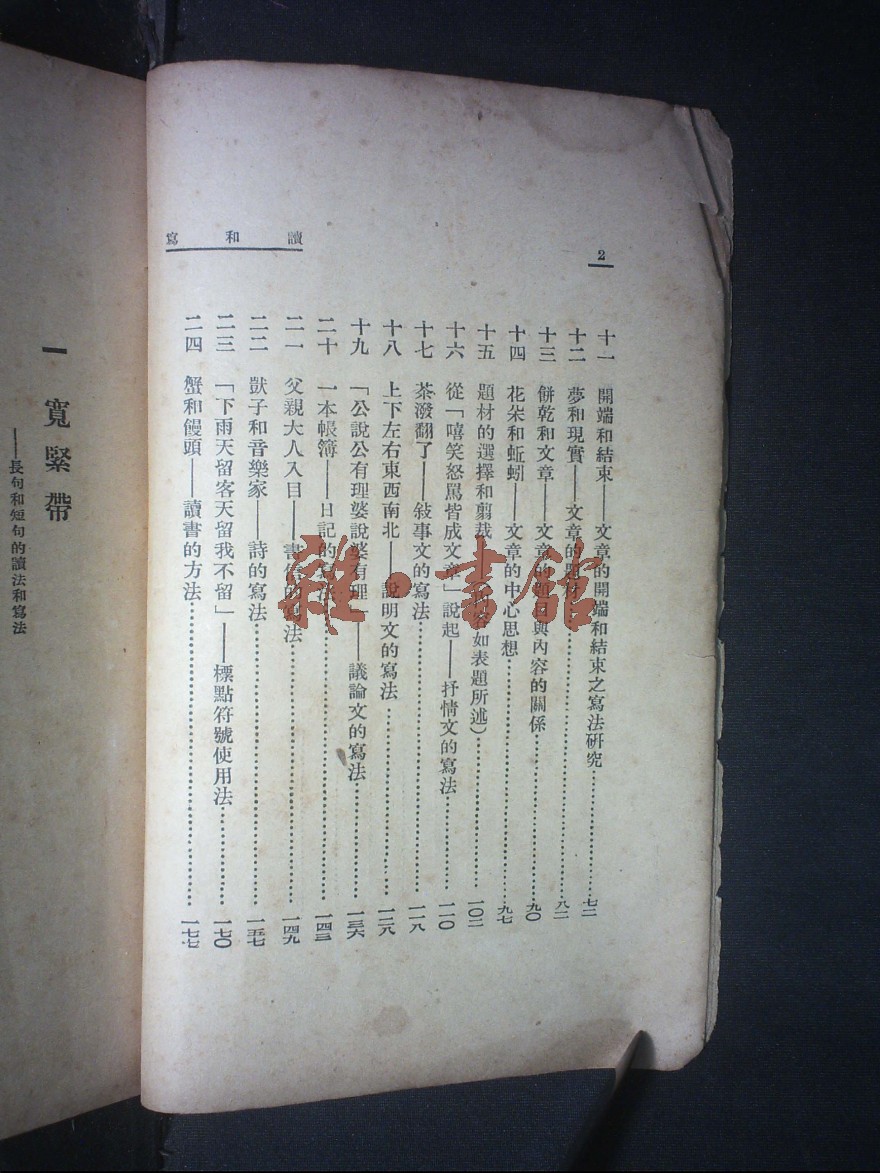 讀和寫
2
十一 開端和結束——文章的開端和結束之寫法研究…………七二
十二 夢和現實——文章的題材…………八二
十三 餅乾和文章——文章的題目與內容的關係…………九〇
十四 花朵和蚯蚓——文章的中心思想…………九七
十五 題材的選擇和剪裁 容如表題所述）…………一〇二
十六 從「嘻笑怒罵皆成文章」說起——抒情文的寫法…………一一〇
十七 茶潑翻了——敍事文的寫法…………一一八
十八 上下左右東西南北——說明文的寫法…………一二八
十九 「公說公有理婆說婆有理」——議論文的寫法…………一三六
二十 一本帳簿——日記的寫法…………一四三
二一 父親大人入目——書信的寫法…………一四九
二二 獃子和音樂家——詩的寫法…………一五七
二三 「下雨天留客天留我不留」——標點符號使用法…………一七〇
二四 蟹和饅頭——讀書的方法…………一七七
一 寬緊帶
——長句和短句的讀法和寫法
雜·書館